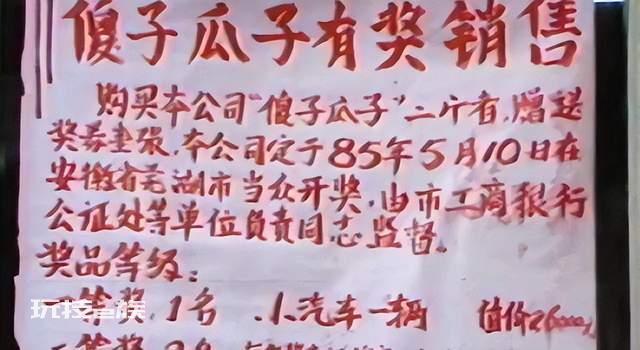 傻子瓜子有奖销售
购买本公司“傻子瓜子”二斤者，赠送
奖券壹张，本公司定于85年5月10日在
安徽省芜湖市当众开奖，由市工商银行
公证处等单位负责同志监督。
奖品等级：
一等奖 1名 小汽车一辆 值价26000
二等奖
玩技e族